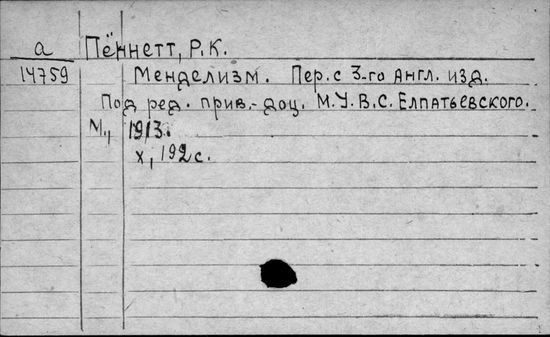 а Пённетт, Р. К.
14759 Менделизм. Пер. с 3-го Англ. изд.
Под ред. прив.-доц. М.У. В.С. Елпатьевского.
М., 1913.
х, 192 с.